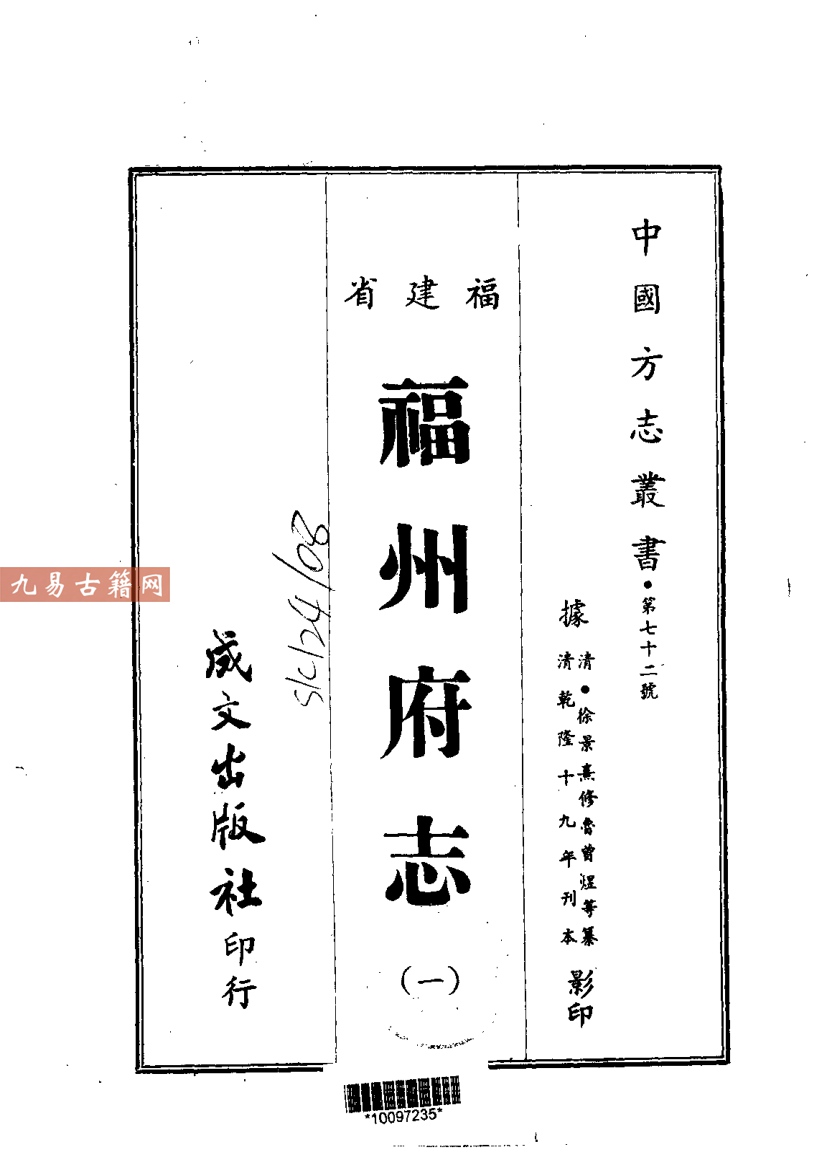 中國方志叢書•第七十二號
據
清•徐景熹修魯曾煜等纂
清乾隆十九年刊本
影印
福建省
福州府志
(一)
成文出版社印行
九易古籍网
*10097235*